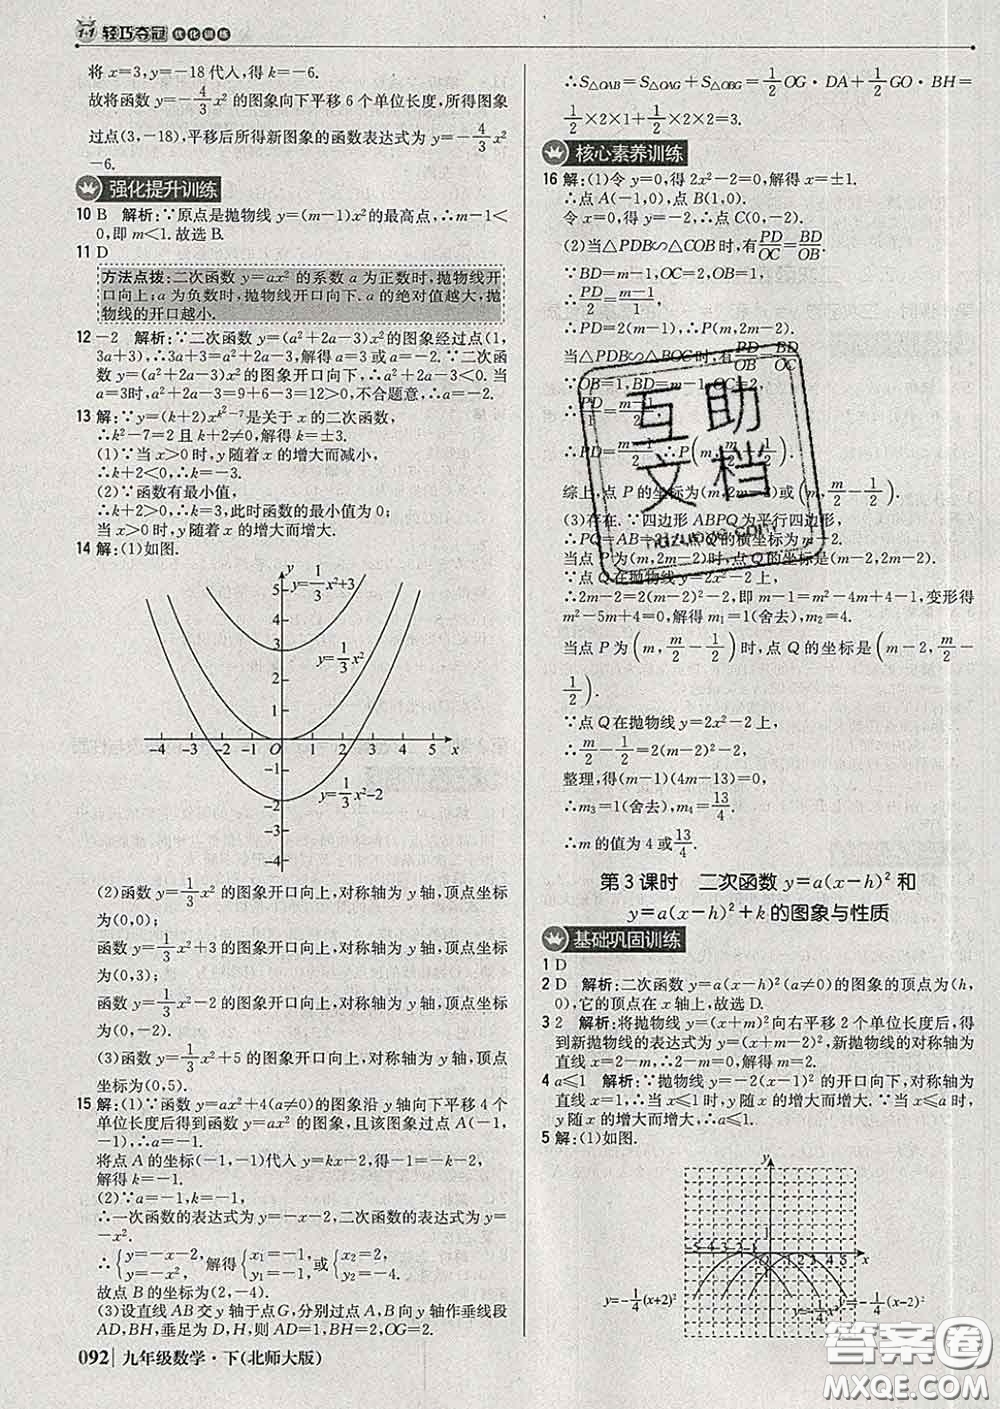 1+1 轻巧夺冠 优化训练
将 x=3,y=-18 代入,得 k=-6.
故将函数 y=-4/3x² 的图象向下平移 6 个单位长度,所得图象
过点(3,-18),平移后所得新图象的函数表达式为 y=-4/3x²
-6.
强化提升训练
10 B 解析:∵原点是抛物线 y=(m-1)x²的最高点,∴m-1<
0,即 m<1.故选 B.
11 D
方法点拨:二次函数 y=ax² 的系数 a 为正数时,抛物线开
口向上;a 为负数时,抛物线开口向下.a 的绝对值越大,抛
物线的开口越小.
12 -2 解析:∵二次函数 y=(a²+2a-3)x²的图象经过点(1,
3a+3),∴3a+3=a²+2a-3,解得 a=3 或 a=-2.∵二次函
数 y=(a²+2a-3)x²的图象开口向下,∴a²+2a-3<0.当
a=3时,a²+2a-3=9+6-3=12>0,不合题意,∴a=-2.
13 解:∵y=(k+2)x^(k²-7)是关于 x 的二次函数,
∴k²-7=2 且 k+2≠0,解得 k=±3.
(1)∵当 x>0 时,y 随着 x 的增大而减小,
∴k+2<0,∴k=-3.
(2)∵函数有最小值,
∴k+2>0,∴k=3,此时函数的最小值为 0;
当 x>0时,y 随着 x 的增大而增大.
14 解:(1)如图.
y
5
y=1/3x²+3
4
3
y=1/3x²
2
1
-4 -3 -2 -1 O 1 2 3 4 5 x
-2
y=1/3x²-2
-3
-4
(2)函数 y=1/3x² 的图象开口向上,对称轴为 y 轴,顶点坐标
为(0,0);
函数 y=1/3x²+3 的图象开口向上,对称轴为 y 轴,顶点坐标
为(0,3);
函数 y=1/3x²-2 的图象开口向上,对称轴为 y 轴,顶点坐标
为(0,-2).
(3)函数 y=1/3x²+5 的图象开口向上,对称轴为 y 轴,顶点
坐标为(0,5).
15 解:(1)∵函数 y=ax²+4(a≠0)的图象沿 y轴向下平移 4 个
单位长度后得到函数 y=ax² 的图象,且该图象过点 A(-1,
-1),∴a=-1.
将点 A 的坐标(-1,-1)代入 y=kx-2,得-1=-k-2,
解得 k=-1.
(2)∵a=-1,k=-1,
∴一次函数的表达式为 y=-x-2,二次函数的表达式为 y=
-x².
∴{y=-x-2, y=-x², 解得{x₁=-1, y₁=-1,或{x₂=2, y₂=-4.
故点 B 的坐标为(2,-4).
(3)设直线 AB 交 y 轴于点 G,分别过点 A,B 向 y 轴作垂线段
AD,BH,垂足为 D,H,则 AD=1,BH=2,OG=2.
092 九年级数学·下(北师大版)
∴S△OAB=S△OAG+S△OBG=1/2OG·DA+1/2GO·BH=
1/2×2×1+1/2×2×2=3.
核心素养训练
16 解:(1)令 y=0,得 2x²-2=0,解得 x=±1.
∴点 A(-1,0),点 B(1,0).
令 x=0,得 y=-2,∴点 C(0,-2).
(2)当△PDB∽△COB 时,有PD/OC=BD/OB.
∵BD=m-1,OC=2,OB=1,
∴PD/2=m-1/1,
∴PD=2(m-1),∴P(m,2m-2).
当△PDB∽△BOC 时,有PD/OB=BD/OC.
∵OB=1,BD=m-1,OC=2,
∴PD/1=m-1/2,
∴PD=m-1/2,∴P(m,m/2-1/2).
综上,点 P 的坐标为(m,2m-2)或(m,m/2-1/2).
(3)存在.∵四边形 ABPQ 为平行四边形,
∴PQ=AB=2,∴点 Q 的横坐标为 m-2.
当点 P 为(m,2m-2)时,点 Q 的坐标是(m-2,2m-2).
∵点 Q 在抛物线 y=2x²-2 上,
∴2m-2=2(m-2)²-2,即 m-1=m²-4m+4-1,变形得
m²-5m+4=0,解得 m₁=1(舍去),m₂=4.
当点 P 为(m,m/2-1/2)时,点 Q 的坐标是(m-2,m/2-
1/2).
∵点 Q 在抛物线 y=2x²-2 上,
∴m/2-1/2=2(m-2)²-2,
整理,得(m-1)(4m-13)=0,
∴m₃=1(舍去),m₄=13/4.
∴m 的值为 4 或13/4.
第 3 课时 二次函数 y=a(x-h)² 和
y=a(x-h)²+k 的图象与性质
基础巩固训练
1 D
2 D 解析:二次函数 y=a(x-h)²(a≠0)的图象的顶点为(h,
0),它的顶点在 x 轴上,故选 D.
3 2 解析:将抛物线 y=(x+m)²向右平移 2 个单位长度后,得
到新抛物线的表达式为 y=(x+m-2)²,新抛物线的对称轴为
直线 x=2-m,∴2-m=0,解得 m=2.
4 a≤1 解析:∵抛物线 y=-2(x-1)² 的开口向下,对称轴为
直线 x=1,∴当 x≤1时,y随 x 的增大而增大.∵当 x≤a 时,
y 随 x 的增大而增大,∴a≤1.
5 解:(1)如图.
y
1
-5-4-3-2-1 O 1 2 3 4 5 x
y=-1/4(x+2)²
y=-1/4x²
y=-1/4(x-2)²
互助文档
huzuwone.com
答案圈
MXQE.COM